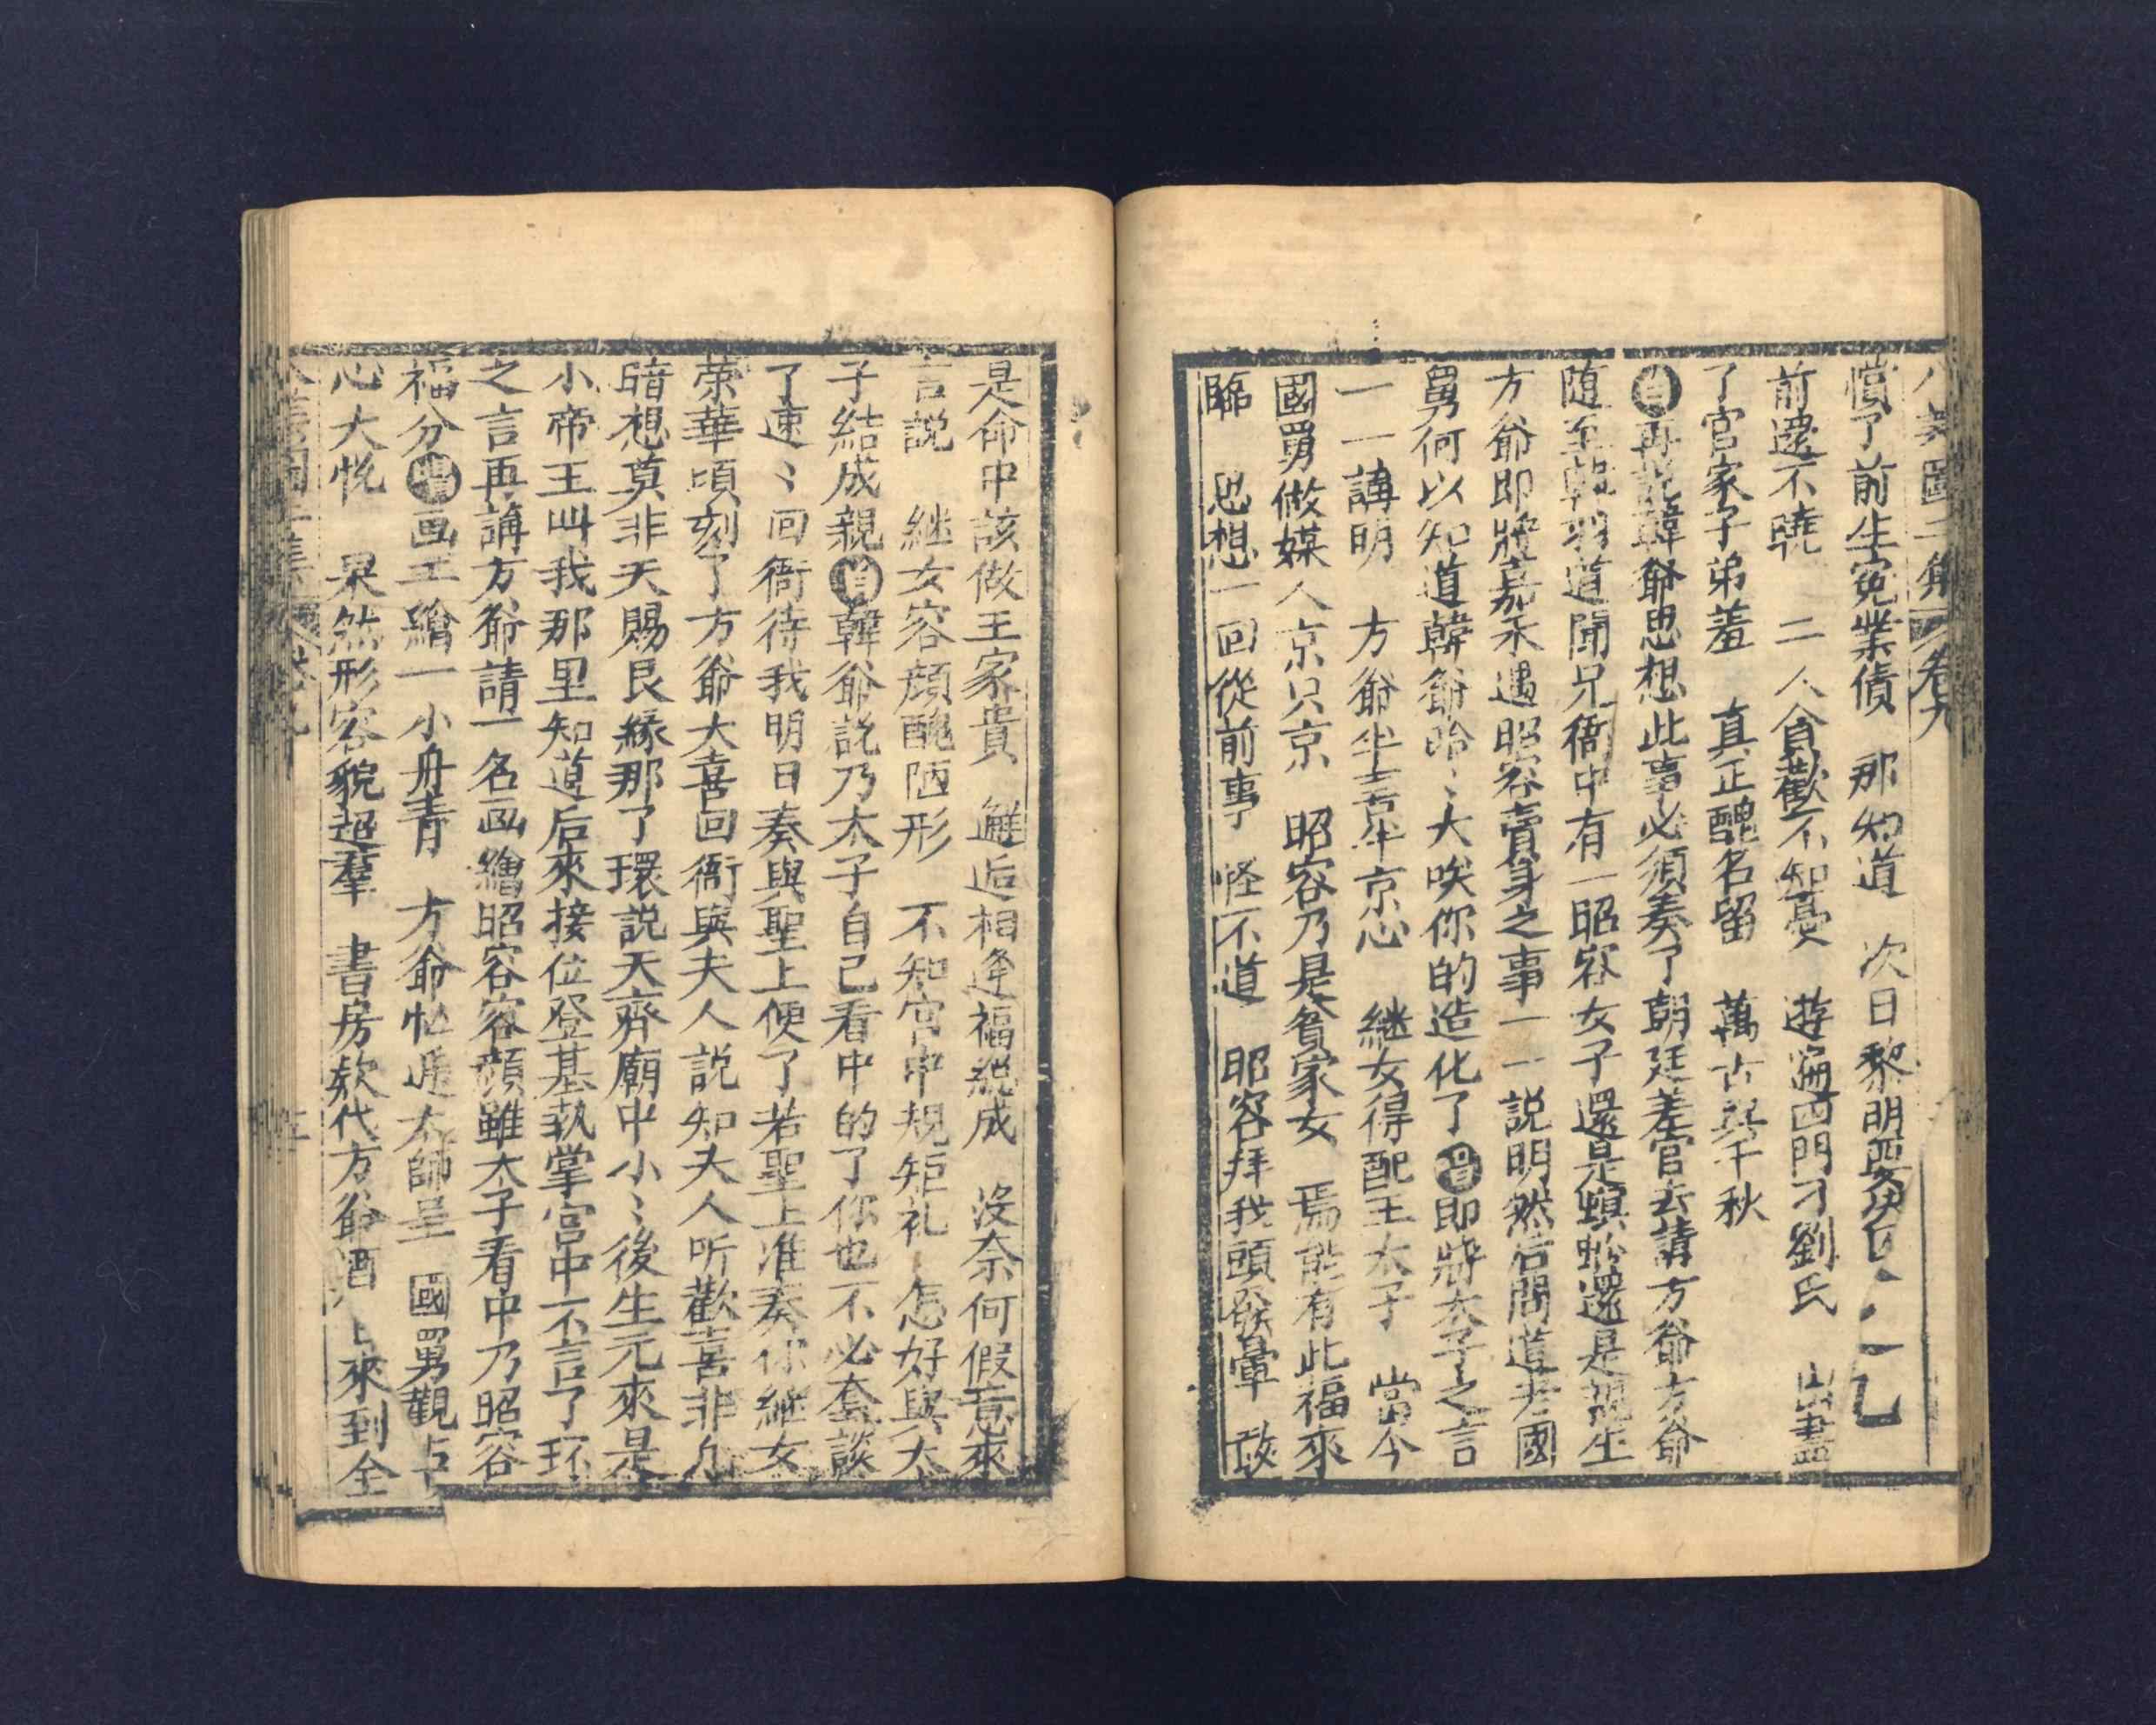 八美圖二集 卷九
償了前生冤業債 那知道 次日黎明要
前邊不曉 二人貪歡不知憂 遊遍四門刁劉氏 出盡
了官家子弟羞 真正醜名留 萬古與千秋
白再說韓爺思想此事必須奏了朝廷差官去請方爺方爺
随至韓羽道聞兄衙中有一昭容女子還是螟蛉還是親生
方爺即將嘉禾遇昭容賣身之事一一説明然后問道老國
舅何以知道韓爺哈〻大唉你的造化了白即將太子之言
一一講明 方爺半喜半京心 継女得配王太子 當今
國舅做媒人京只京 昭容乃是貧家女 焉能有此福來
臨 思想一回從前事 怪不道 昭容拜我頭發暈 敢
是命中該做王家貴 邂逅相逢福総成 沒奈何假意來
言説 継女容顔醜陋形 不知宮中規矩礼 怎好與太
子結成親白韓爺説乃太子自己看中的了你也不必套談
了速〻回衙待我明日奏與聖上便了若聖上准奏你継女
荣華頃刻了方爺大喜回衙與夫人説知夫人听歡喜非凢
暗想莫非天賜良緣那了環説天齊廟中小〻後生元來是
小帝王呌我那里知道后來接位登基執掌宮中不言了环
之言再講方爺請一名画繪昭容容顔雖太子看中乃昭容
福分唱画工繪一小舟青 方爺忙逓太師呈 國舅觀占
心大悅 果然形容貌超羣 書房欵代方爺酒 來到全